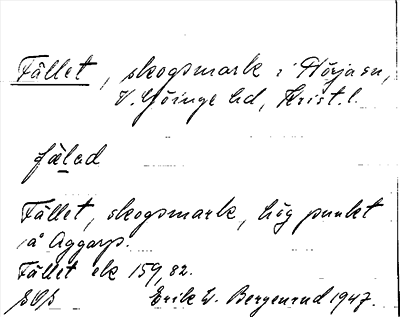 Fället, skogsmark i Nörja sn,
V. Göinge hd, Krist. l.
fälad
Fället, skogsmark, hög punkt
å Aggarp.
Fället ek 159, 82.
Erik W. Bergenrud 1947.